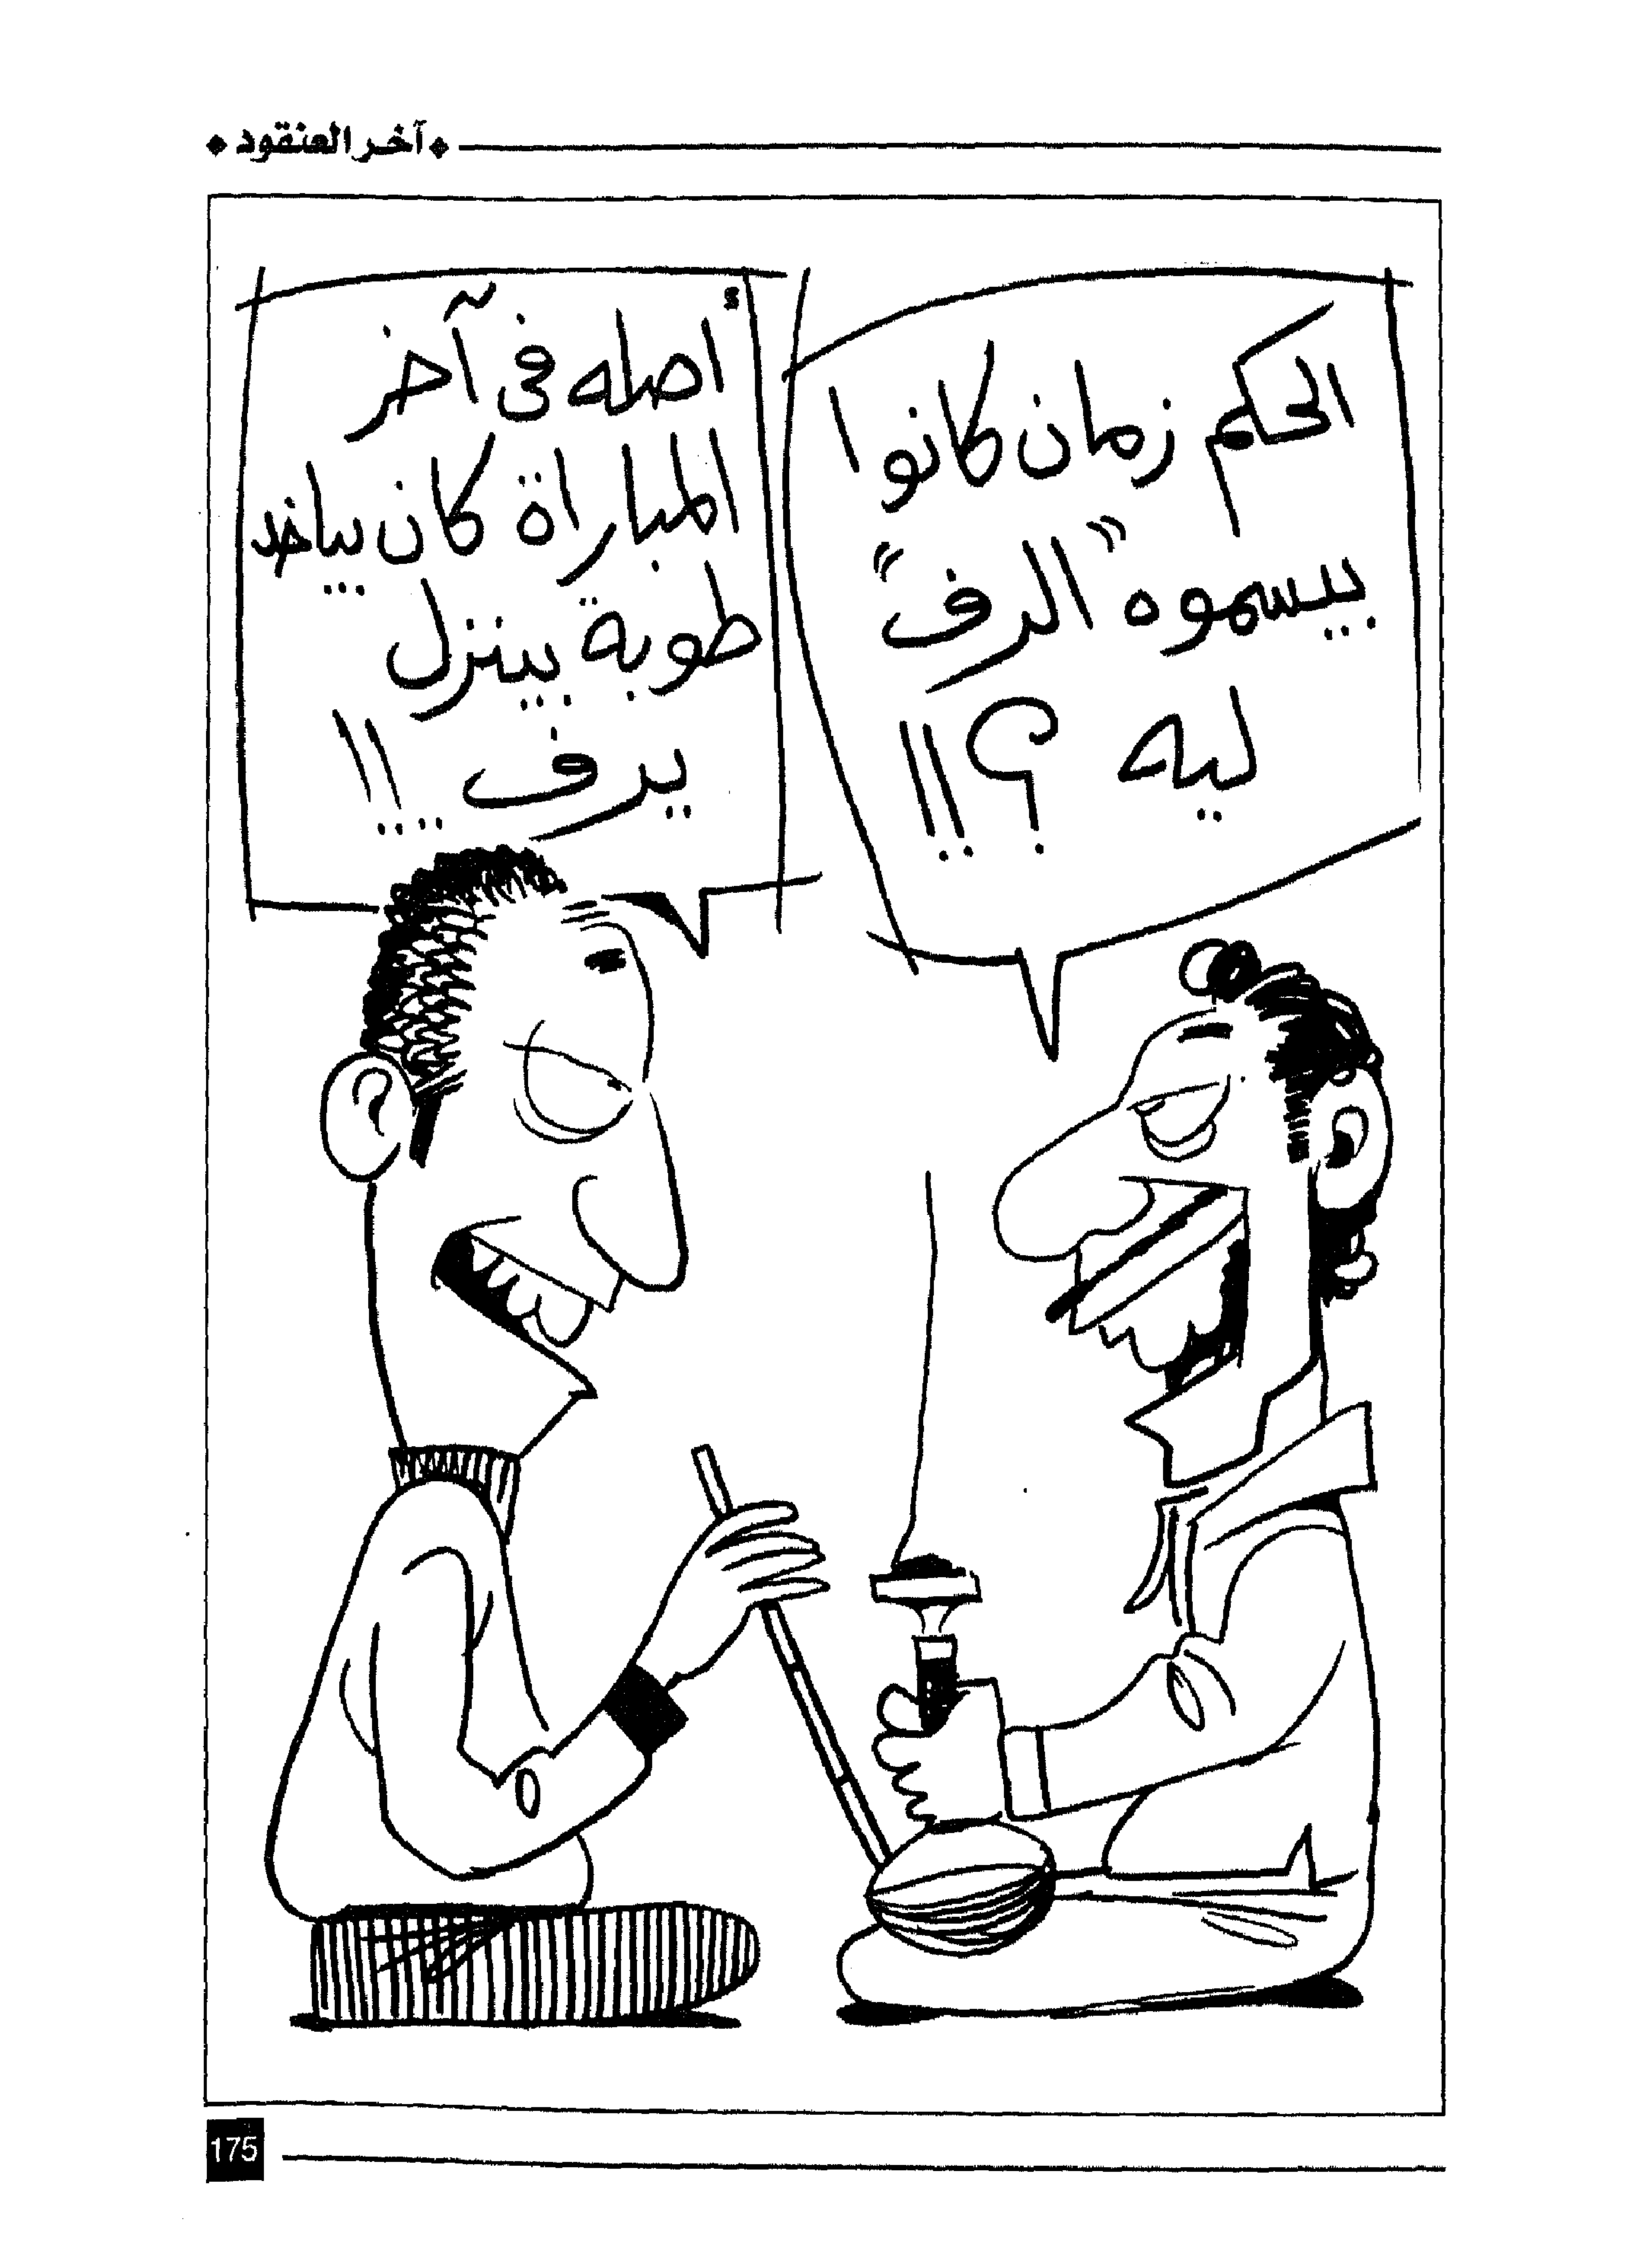 آخر العنقود
الحكم زمان كانوا
بيسموه "الرف"
ليه ؟!!
أصله فى آخر
المباراة كان بياخد
طوبة بينزل
يرف ..!!
175